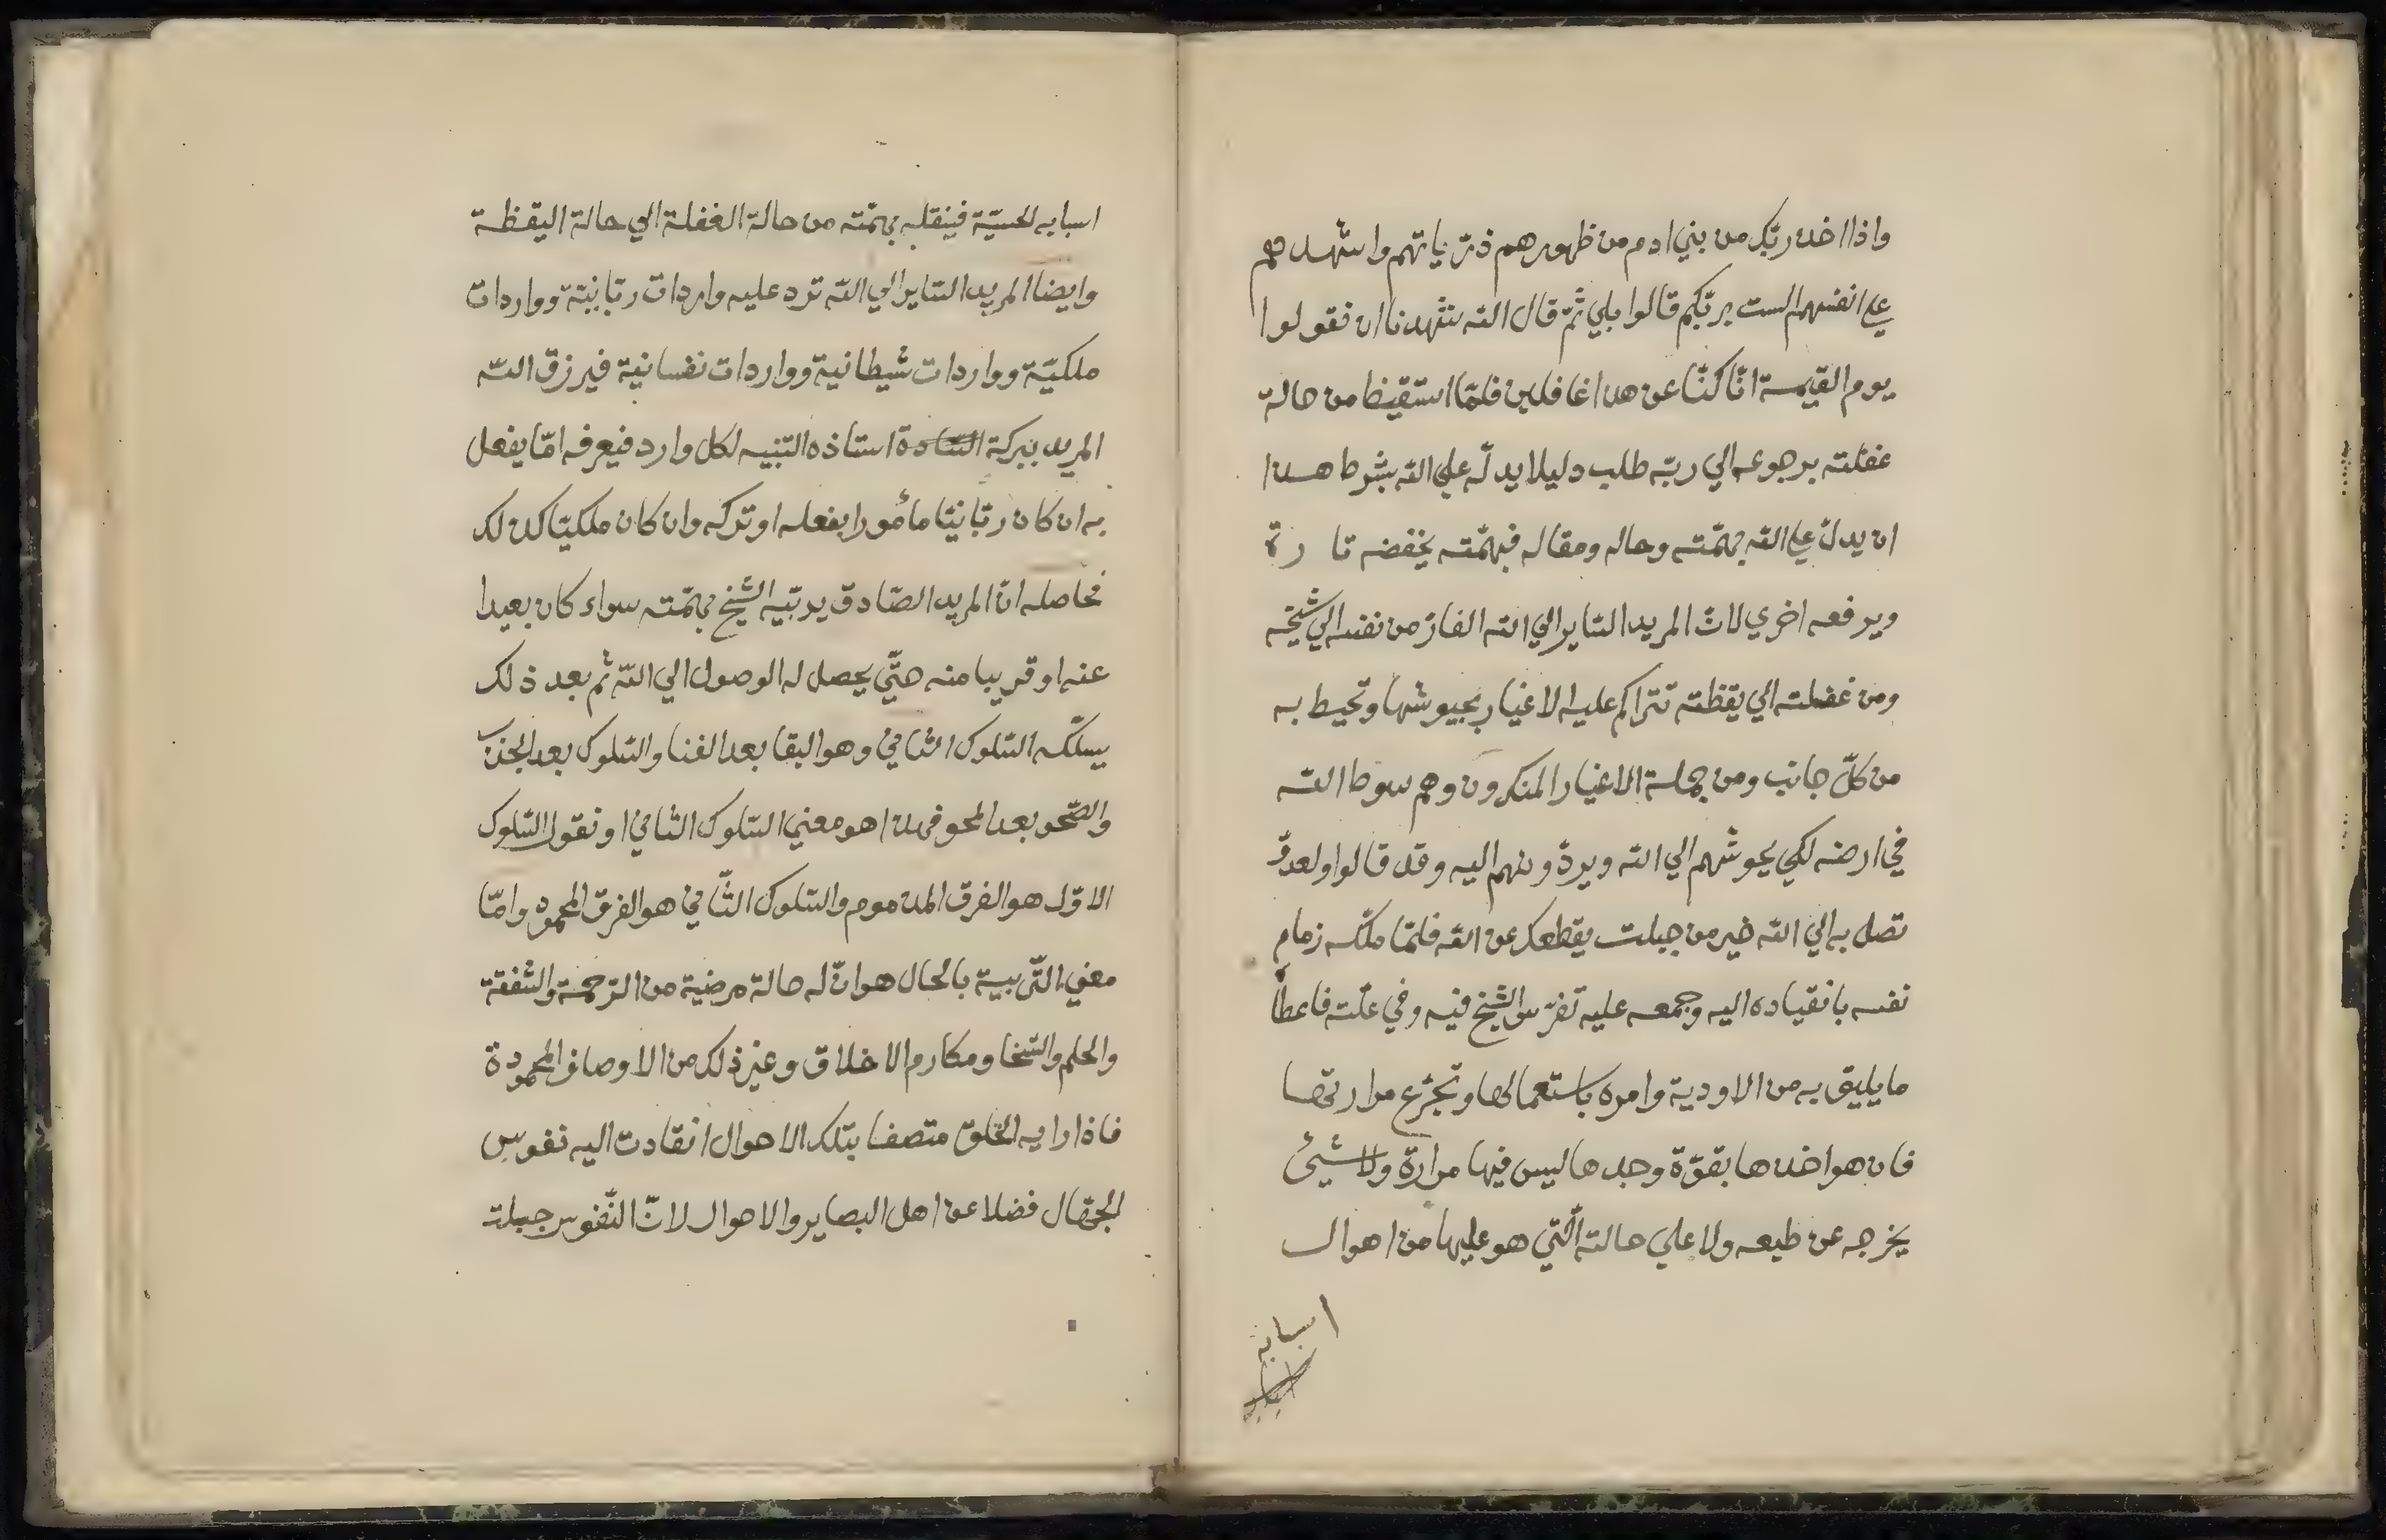 واذا اخد ربّك من بني ادم من ظهورهم ذرّياتهم واشهدهم
علي انفسهم الست بربّكم قالوا بلي ثمّ قال الله شهدنا ان تقولوا
يوم القيمة انّا كنّا عن هدا غافلين فلمّا استقيظ من حالة
غفلته برجوعه الي ربّه طلب دليلا يدلّه علي الله بشرط هدا
ان يدلّ علي الله بهمّته وحاله ومقاله فبهمّته يخفضه تا رة
ويرفعه اخري لانّ المريد السّاير الي الله الفارّ من نفسه الي شيخه
ومن غفلته الي يقظته تتراكم عليه الاغيار بجيوشها وتحيط به
من كلّ جانب ومن جملة الاغيار المنكرون وهم سوط الله
في ارضه لكي يحوشهم الي الله ويردّونهم اليه وقد قالوا ولعدوّ
تصل به الي الله خير من جبلت يقطعك عن الله فلمّا ملّكه زمام
نفسه بانقياده اليه وجمعه عليه تفرّس الشيخ فيه وفي علّته فاعطاه
ما يليق به من الاودية وامره باستعمالها وتجرّع مرارتها
فان هو اخدها بقوّة وجدها ليس فيها مرارة ولا شيئ
يخرجه عن طبعه ولا علي حالته الّتي هو عليها من اهوال
اسبابه
اسبابه الحسيّة فينقله بهمّته من حالة الغفلة الي حالة اليقظة
وايضا المريد السّاير الي الله ترد عليه واردات ربّانيّة وواردات
ملكيّة وواردات شيطانية وواردات نفسانية فيرزق الله
المريد ببركة السّادة استاذه التّنبيه لكل وارد فيعرفه امّا يفعل
به ان كان ربّانيّا مأمورا بفعله او تركه وان كان ملكيّا كدلك
فحاصله انّ المريد الصّادق يربّيه الشيخ بهمّته سواء كان بعيدا
عنه او قريبا منه حتّي يحصل له الوصول الي الله ثم بعد ذلك
يسلّكه السّلوك الثاني وهو البقا بعد الفنا والسّلوك بعد الجذب
والصّحو بعد المحو فهدا هو معني السّلوك الثاني او نقول السّلوك
الاوّل هو الفرق المدموم والسّلوك الثّاني هو الفرق المحمود وامّا
معني التّربية بالحال هو انّ له حالة مرضية من الرّحمة والشفقة
والحلم والسّخا ومكارم الاخلاق وغير ذلك من الاوصاف المحمودة
فاذا رايه الخلق متصفا بتلك الاحوال انقادت اليه نفوس
الجهّال فضلا عن اهل البصاير والاحوال لانّ النّفوس جبلت